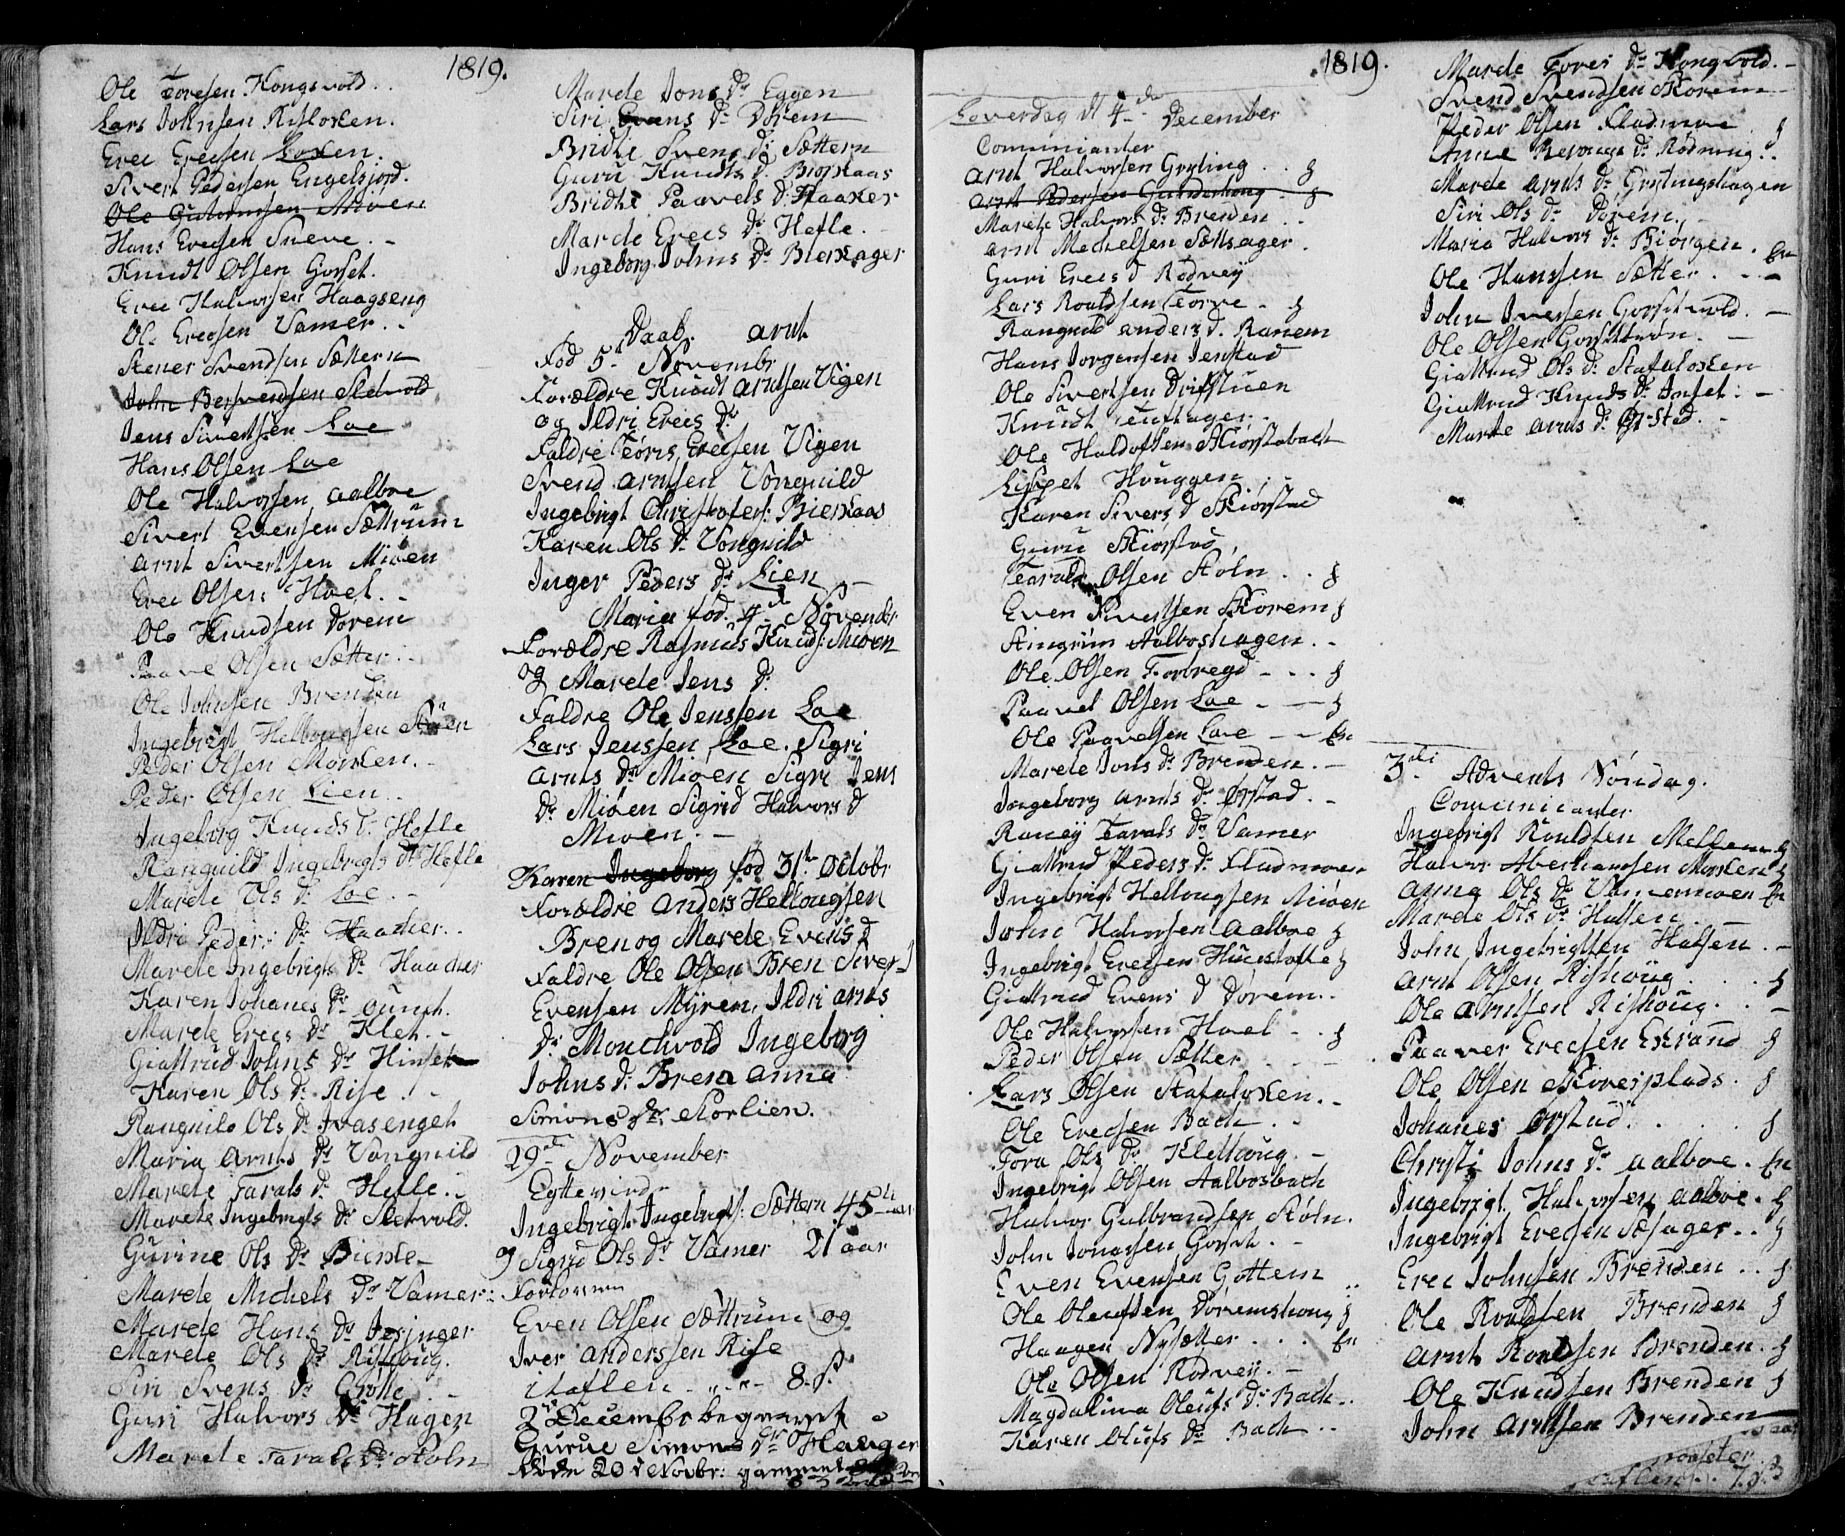 1819.
Ole Toresen Kongsvold..
Lars Johnsen Risloken.
Erec Erecsen Loxen.
Sivert Pedersen Engelsjord.
Ole Guttormsen Mioen
Hans Erecsen Sneve. -
Knudt Olsen Gorset.
Erec Halvorsen Haagseng
Ole Erecsen Vamer..
Stener Svendsen Sættern
John Bersvendsen Sletvold
Jens Sivertsen Loe
Hans Olsen Loe
Ole Halvorsen Aalboe
Sivert Evensen Sættrum
Arnt Sivertsen Mioen
Erec Olsen Hoel..
Ole Knudsen Dorem
Paave Olsen Sætter..
Ole Johnsen Brenden
Ingebrigt Hellougsen
Peder Olsen Morken.-
Peder Olsen Lien..
Ingeborg Knuds d: Hefle
Ranguild Ingebrigts dr Hefle
Marete Ols dr Loe.-
Ildri Peders dr Haacker..
Marete Ingebrigts dr Haacker
Karen Johanes dr Gunst.
Marete Erecs dr Klet.-
Giattrud Johns dr Hinset
Karen Ols dr Rise.-
Ranguild Ols dr Ivasenget
Maria Arnts dr Vonguild
Marete Tarals dr Hefle..
Marete Ingebrigts dr Sletvold.
Gurine Ols dr
Marete Michels dr Vamer:
Marete Hans dr
Marete Ols dr Rishoug.
Siri Svens dr Grotte.-
Guri Halvors dr Hagen
Marete Tarals dr Stoln
Marete Jons dr Eggen
Siri Evens dr Dorem
Bridte Svens dr Sættern
Guru Knudts d. Biorkaas
Bridte Paavels d: Haaker
Marete Erecs dr Hefle.
Ingeborg Johns dr Bierkager
Daab. Arnt
Fod 5t Novembr
Forældre Knudt Arntsen Vigen
og Ildri Erecs dr
Faldre Tøris Erecsen Vigen
Svend Arntsen Vonguild
Ingebrigt Christofers: Bierkaas
Karen Ols dr Vonguild
Inger Peders dr Lien -
Maria fod. 4de Novembr
Forældre Rasmus Knuds: Mioen
og Marete Jens d.
Faldre Ole Jenssen Loe
Lars Jenssen Loe. Sigri
Arnts dr Mioen Sigri Jens
dr Mioen Sigrid Halvors d
Mioen.-
Karen Ingeborg fod 31te Octobr
Forældre Anders Hellougsen
Bren og Marete Evens d
Faldre Ole Olsen Bren Siver
Evensen Myren, Ildri Arnts
dr Monchvold Ingeborg
Johns d: Bren Anna
Simons dr Storlien.
29de November
Egtevirde
Ingebrigt Ingebrigts: Sættern 45 aar
og Sigrid Ols dr Vamer 21 aar
Forlovere
Even Olsen Sættrum og
Iver Anderssen Rise
itaflen - „ - 8.ß.
2de Decembr begravet
Gurue Simons dr Hauger
døde 20 Novbr: gammel
1819.
Loverdag d 4de December
Comunicanter
Arnt Halvorsen Gryting..
Arnt Pedersen Gunderhoug -
Marete Halvors dr Brenden..
Arnt Mechelsen Sætsager.
Guri Erecs d Rodvey
Lars Roaldsen Torve -
Rangnild Anders d. Ranem
Hans Jorgensen Jenstad
Ole Sivertsen Drifstuen
Knudt
Ole Haldossen Skiorstabach
Lispet Houggen
Karen Sivers d Skiorstad
Guru Skiorstad
Tarald Olsen Stoln..
Even Sivertsen Skorem
Amgrim Aalboshagen..
Ole Olsen Forbregd - ..
Paavel Olsen Loe -
Ole Paavelsen Loe -
Marete Jons dr Brenden.-
Ingeborg Arnts dr Orstad.-
Raney Tarals dr Vamer
Giattrud Peders dr Stadmoen
Ingebrigt Hellougsen Mioen
John Halvorsen Aalboe
Ingebrigt Erecsen Huustofte
Giattrud Evens d Dorem..
Ole Halvorsen Hoel -.
Peder Olsen Sætter
Lars Olsen Stafaloken.-
Ole Erecsen Bach..
Tora Ols dr Klethoug.-
Ingebrigt Olsen Aalbosbach
Halvor Gulbrandsen Stoln.
John Jonassen Gorset.-
Even Evensen Gottem
Ole Olaufsen Doremshoug
Haagen Nysætter...
Ole Olsen Rodvey.-
Magdalina Oleufs dr Bach..
Karen Olufs dr Bach..
Marete Tores dr Kongsvold.-
Svend Svendsen Skorem
Peder Olsen Stadmoe.
Anne dr Rodning..
Marete Arnts dr Grytingshagen
Siri Ols dr Dorem..
Maria Halvors dr Biorgen.
Ole Hanssen Sætter.-
John Iversen Gorsetvold.-
Ole Olsen Gorsettrøn.-
Giattrud Ols d: Stafaloken
Giattrud Knuds dr Inset.-
Marte Arnts dr
3die Advents Søndag.
Comunicanter
Ingebrigt Roaldsen Mellem
Halvor Aberhamsen Morken
Anna Ols dr Vamermoen
Marete Ols dr Halsen.-
John Ingebrigtsen Halsen.-
Arnt Olsen Rishoug..
Ole Arntsen Rishoug..-
Paaver Erecsen Ekrand
Ole Olsen Skoresplads.
Johanes Orstad....
Christi Johns dr Aalboe.
Ingebrigt Halvorsen Aalboe.
Ingebrigt Erecsen Sæsager..
Erec Johnsen Brenden..
Ole Roaldsen Brenden
Arnt Roaldsen Brenden.
Ole Knudsen Brenden
John Arntsen Brenden